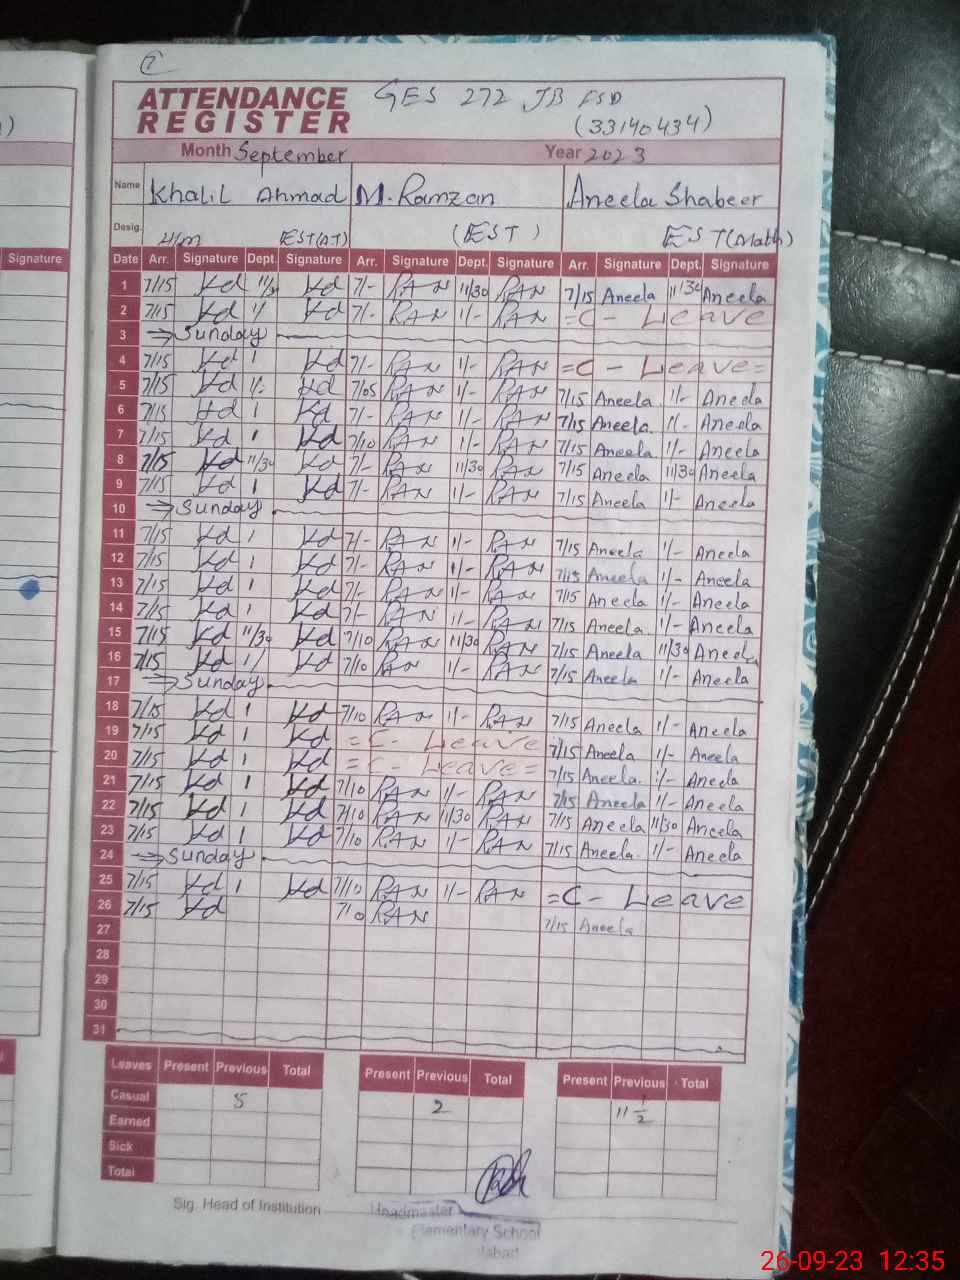 7
ATTENDANCE REGISTER
GES 272 JB FSD
(33140434)
Month September Year 2023
Name Khalil Ahmad M. Ramzan Aneela Shabeer
Desig. H/M EST(AT) (EST) EST(Math)
Signature
Date Arr. Signature Dept. Signature Arr. Signature Dept. Signature Arr. Signature Dept. Signature
1 7/15 Kd 11/30 Kd 7/- RAN 11/30 RAN 7/15 Aneela 11/30 Aneela
2 7/15 Kd 1/ Kd 7/- RAN 1/- RAN =C- Leave
3 Sunday
4 7/15 Kd 1 Kd 7/- RAN 1/- RAN =C- Leave=
5 7/15 Kd 1/- Kd 7/05 RAN 1/- RAN 7/15 Aneela 1/- Aneela
6 7/15 Kd 1 Kd 7/- RAN 1/- RAN 7/15 Aneela 1/- Aneela
7 7/15 Kd 1 Kd 7/10 RAN 1/- RAN 7/15 Aneela 1/- Aneela
8 7/15 Kd 11/30 Kd 7/- RAN 11/30 RAN 7/15 Aneela 11/30 Aneela
9 7/15 Kd 1 Kd 7/- RAN 1/- RAN 7/15 Aneela 1/- Aneela
10 Sunday
11 7/15 Kd 1 Kd 7/- RAN 1/- RAN 7/15 Aneela 1/- Aneela
12 7/15 Kd 1 Kd 7/- RAN 1/- RAN 7/15 Aneela 1/- Aneela
13 7/15 Kd 1 Kd 7/- RAN 1/- RAN 7/15 Aneela 1/- Aneela
14 7/15 Kd 1 Kd 7/- RAN 1/- RAN 7/15 Aneela 1/- Aneela
15 7/15 Kd 11/30 Kd 7/10 RAN 11/30 RAN 7/15 Aneela 11/30 Aneel
16 7/15 Kd 1/ Kd 7/10 RAN 1/- RAN 7/15 Aneela 1/- Aneela
17 Sunday
18 7/15 Kd 1 Kd 7/10 RAN 1/- RAN 7/15 Aneela 1/- Aneela
19 7/15 Kd 1 Kd =C- Leave 7/15 Aneela 1/- Aneela
20 7/15 Kd 1 Kd =C- Leave= 7/15 Aneela 1/- Aneela
21 7/15 Kd 1 Kd 7/10 RAN 1/- RAN 7/15 Aneela 1/- Aneela
22 7/15 Kd 1 Kd 7/10 RAN 11/30 RAN 7/15 Aneela 11/30 Aneela
23 7/15 Kd 1 Kd 7/10 RAN 1/- RAN 7/15 Aneela 1/- Aneela
24 Sunday
25 7/15 Kd 1 Kd 7/10 RAN 1/- RAN =C- Leave
26 7/15 Kd 7/10 RAN 7/15 Aneela
27
28
29
30
31
Leaves Present Previous Total Present Previous Total Present Previous Total
Casual 5 2 11 1/2
Earned
Sick
Total
Sig. Head of Institution
Headmaster
Elementary School
26-09-23 12:35